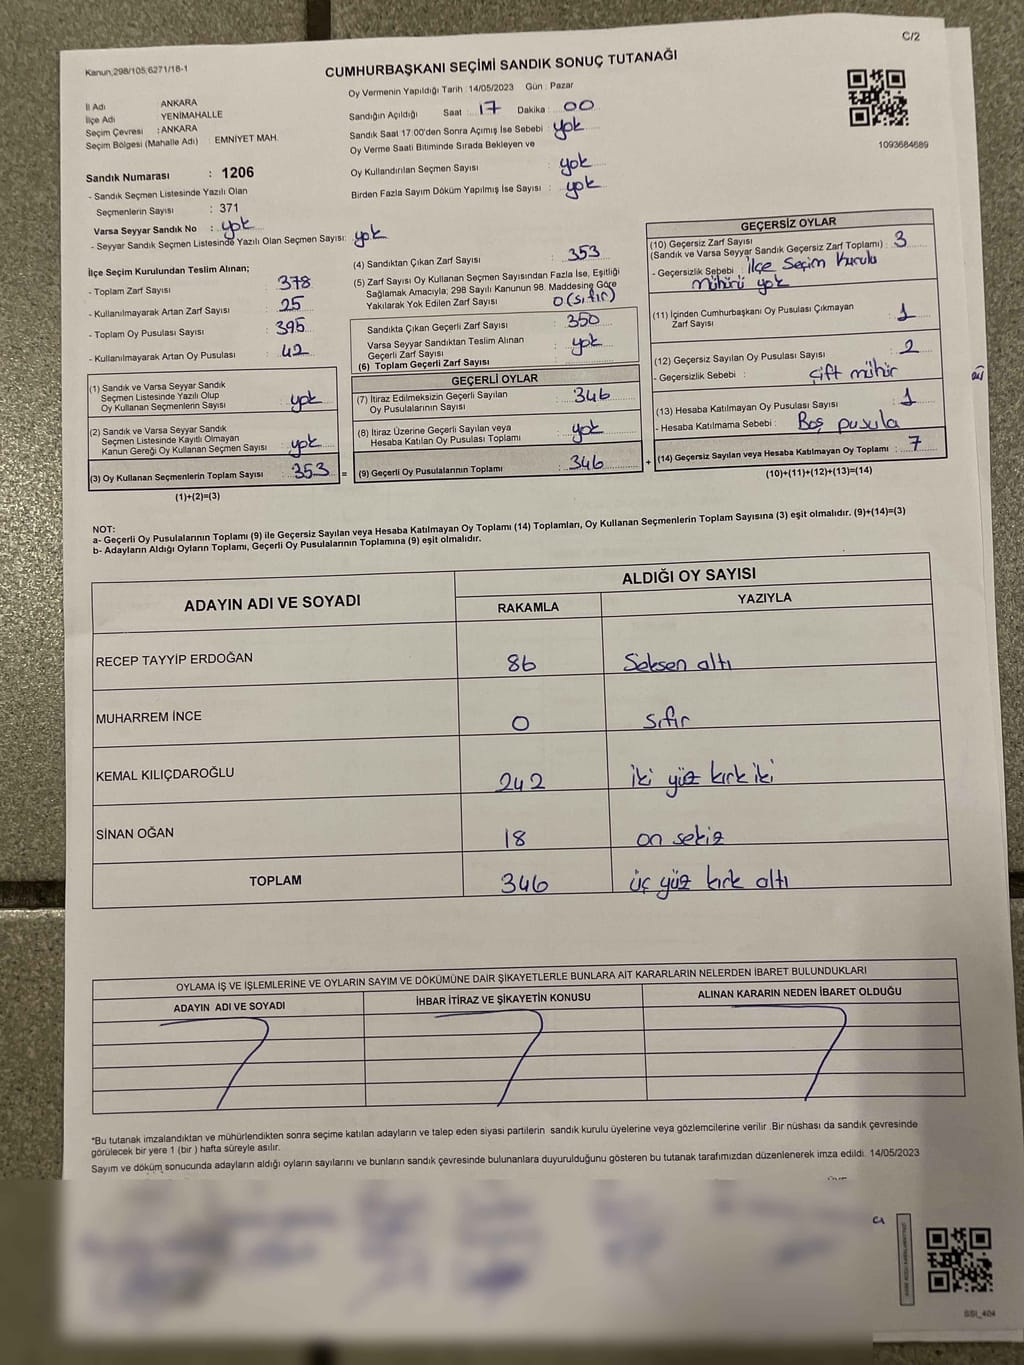 C/2
Kanun;298/105;6271/18-1
CUMHURBAŞKANI SEÇİMİ SANDIK SONUÇ TUTANAĞI
Oy Vermenin Yapıldığı Tarih : 14/05/2023 Gün : Pazar
İl Adı ANKARA
İlçe Adı YENİMAHALLE
Seçim Çevresi : ANKARA
Seçim Bölgesi (Mahalle Adı) : EMNİYET MAH.
Sandığın Açıldığı Saat : 17 Dakika : 00
Sandık Saat 17:00'den Sonra Açımış İse Sebebi : yok
Oy Verme Saati Bitiminde Sırada Bekleyen ve
Oy Kullandırılan Seçmen Sayısı : yok
Birden Fazla Sayım Döküm Yapılmış İse Sayısı : yok
1093684689
Sandık Numarası : 1206
- Sandık Seçmen Listesinde Yazılı Olan
Seçmenlerin Sayısı : 371
Varsa Seyyar Sandık No : yok
- Seyyar Sandık Seçmen Listesinde Yazılı Olan Seçmen Sayısı: yok
İlçe Seçim Kurulundan Teslim Alınan;
- Toplam Zarf Sayısı : 378
- Kullanılmayarak Artan Zarf Sayısı : 25
- Toplam Oy Pusulası Sayısı : 395
- Kullanılmayarak Artan Oy Pusulası : 42
(1) Sandık ve Varsa Seyyar Sandık
Seçmen Listesinde Yazılı Olup
Oy Kullanan Seçmenlerin Sayısı : yok
(2) Sandık ve Varsa Seyyar Sandık
Seçmen Listesinde Kayıtlı Olmayan
Kanun Gereği Oy Kullanan Seçmen Sayısı : yok
(3) Oy Kullanan Seçmenlerin Toplam Sayısı : 353
(1)+(2)=(3)
=
(4) Sandıktan Çıkan Zarf Sayısı : 353
(5) Zarf Sayısı Oy Kullanan Seçmen Sayısından Fazla İse, Eşitliği
Sağlamak Amacıyla; 298 Sayılı Kanunun 98. Maddesine Göre
Yakılarak Yok Edilen Zarf Sayısı : 0 (sıfır)
Sandıkta Çıkan Geçerli Zarf Sayısı : 350
Varsa Seyyar Sandıktan Teslim Alınan
Geçerli Zarf Sayısı : yok
(6) Toplam Geçerli Zarf Sayısı
GEÇERLİ OYLAR
(7) İtiraz Edilmeksizin Geçerli Sayılan
Oy Pusulalarının Sayısı : 346
(8) İtiraz Üzerine Geçerli Sayılan veya
Hesaba Katılan Oy Pusulası Toplamı : yok
(9) Geçerli Oy Pusulalarının Toplamı : 346
+
GEÇERSİZ OYLAR
(10) Geçersiz Zarf Sayısı
(Sandık ve Varsa Seyyar Sandık Geçersiz Zarf Toplamı) : 3
- Geçersizlik Sebebi : İlçe Seçim Kurulu
Mühürü yok
(11) İçinden Cumhurbaşkanı Oy Pusulası Çıkmayan
Zarf Sayısı : 1
(12) Geçersiz Sayılan Oy Pusulası Sayısı : 2
- Geçersizlik Sebebi : Çift mühür
(13) Hesaba Katılmayan Oy Pusulası Sayısı : 1
- Hesaba Katılmama Sebebi : Boş pusula
(14) Geçersiz Sayılan veya Hesaba Katılmayan Oy Toplamı : 7
(10)+(11)+(12)+(13)=(14)
NOT:
a- Geçerli Oy Pusulalarının Toplamı (9) ile Geçersiz Sayılan veya Hesaba Katılmayan Oy Toplamı (14) Toplamları, Oy Kullanan Seçmenlerin Toplam Sayısına (3) eşit olmalıdır. (9)+(14)=(3)
b- Adayların Aldığı Oyların Toplamı, Geçerli Oy Pusulalarının Toplamına (9) eşit olmalıdır.
ADAYIN ADI VE SOYADI ALDIĞI OY SAYISI
RAKAMLA YAZIYLA
RECEP TAYYİP ERDOĞAN 86 Seksen altı
MUHARREM İNCE 0 sıfır
KEMAL KILIÇDAROĞLU 242 iki yüz kırk iki
SİNAN OĞAN 18 on sekiz
TOPLAM 346 üç yüz kırk altı
OYLAMA İŞ VE İŞLEMLERİNE VE OYLARIN SAYIM VE DÖKÜMÜNE DAİR ŞİKAYETLERLE BUNLARA AİT KARARLARIN NELERDEN İBARET BULUNDUKLARI
ADAYIN ADI VE SOYADI İHBAR İTİRAZ VE ŞİKAYETİN KONUSU ALINAN KARARIN NEDEN İBARET OLDUĞU
*Bu tutanak imzalandıktan ve mühürlendikten sonra seçime katılan adayların ve talep eden siyasi partilerin sandık kurulu üyelerine veya gözlemcilerine verilir .Bir nüshası da sandık çevresinde
görülecek bir yere 1 (bir ) hafta süreyle asılır.
Sayım ve döküm sonucunda adayların aldığı oyların sayılarını ve bunların sandık çevresinde bulunanlara duyurulduğunu gösteren bu tutanak tarafımızdan düzenlenerek imza edildi. 14/05/2023
SSI_404